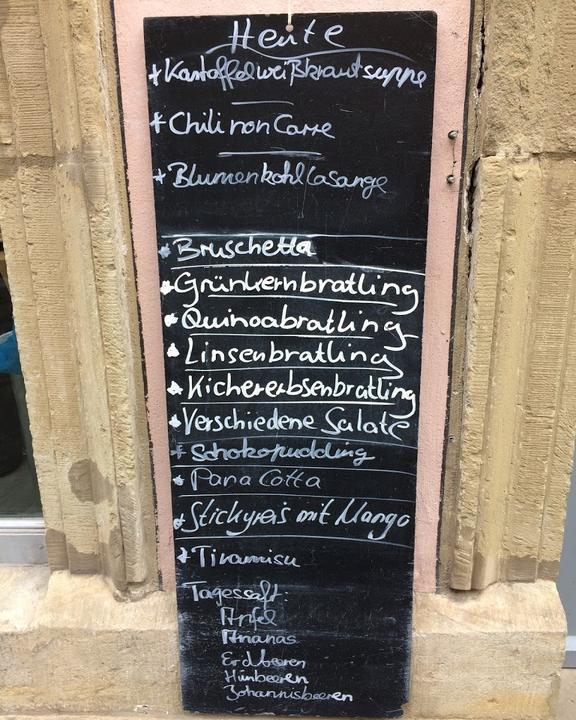 Heute
* Kartoffelweißkrautsuppe
* Chili non Carre
* Blumenkohl Lasange
* Bruschetta
* Grünkernbratling
* Quinoabratling
* Linsenbratling
* Kichererbsenbratling
* Verschiedene Salate
* Schokopudding
* Pana Cotta
* Stickyreis mit Mango
* Tiramisu
Tagessaft:
Apfel
Ananas
Erdbeeren
Himbeeren
Johannisbeeren